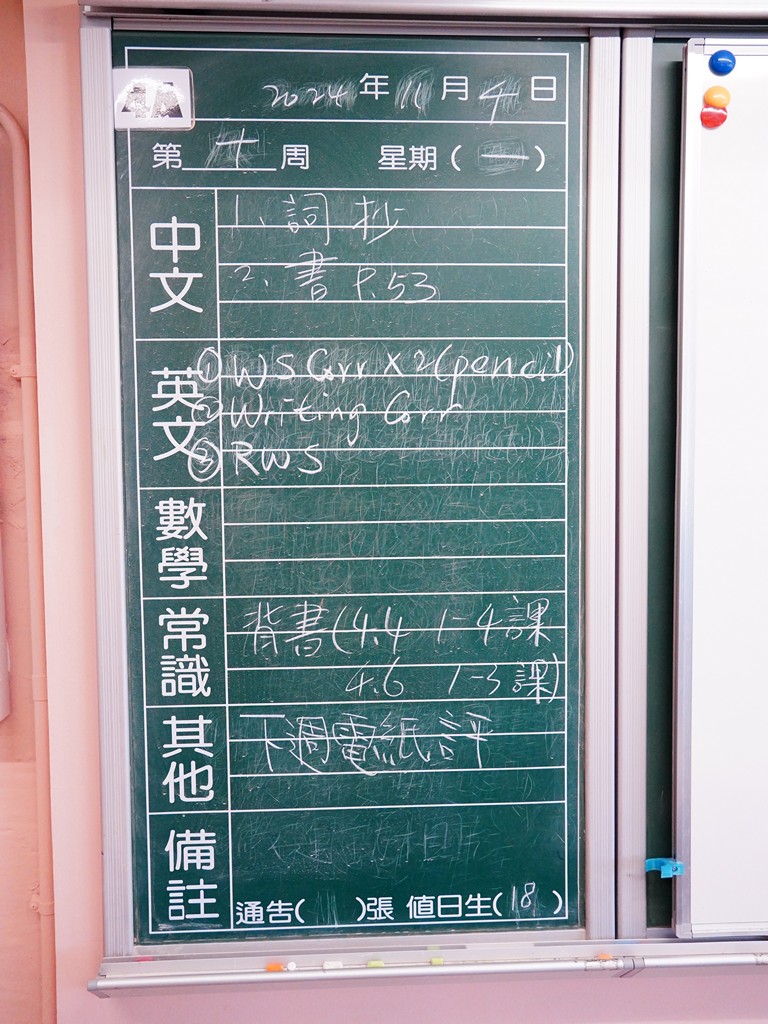 2024年11月4日
第十周 星期(一)
中文
1、詞抄
2、書 P.53
英文
① WS Corr x2 (pencil)
② Writing Corr
③ RWS
數學
常識
背書(4.4 1-4課
4.6 1-3課)
其他
下週電紙評
備註
通告( )張 值日生(18)